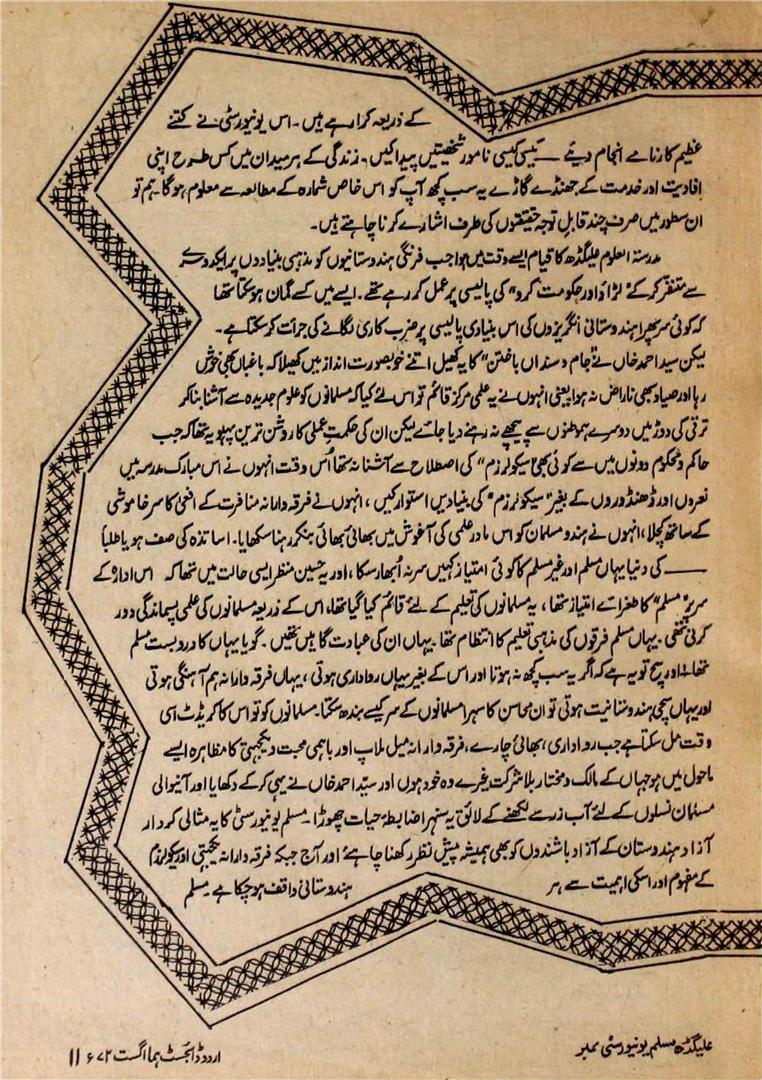 کے ذریعہ کرا رہے ہیں ۔ اس یونیورسٹی نے کتنے
عظیم کارنامے انجام دیئے ـــ کیسی کیسی نامور شخصیتیں پیدا کیں، زندگی کے ہر میدان میں کس طرح اپنی
افادیت اور خدمت کے جھنڈے گاڑے یہ سب کچھ آپ کو اس خاص شمارہ کے مطالعہ سے معلوم ہوگا ۔ ہم تو
ان سطور میں صرف چند قابل توجہ حقیقتوں کی طرف اشارے کرنا چاہتے ہیں ۔
مدرستہ العلوم علیگڈھ کا قیام ایسے وقت میں ہوا جب فرنگی ہندوستانیوں کو مذہبی بنیادوں پر ایکدوسرے
سے متنفر کر کے "لڑاؤ اور حکومت کرو" کی پالیسی پر عمل کر رہے تھے ۔ ایسے میں کسے گمان ہو سکتا تھا
کہ کوئی سر پھرا ہندوستانی انگریزوں کی اس بنیادی پالیسی پر ضرب کاری لگانے کی جرأت کر سکتا ہے ۔
لیکن سید احمد خاں نے "جام و سنداں باختن" کا یہ کھیل اتنے خوبصورت انداز میں کھیلا کہ باغباں بھی خوش
رہا اور صیاد بھی ناراض نہ ہوا یعنی انہوں نے یہ علمی مرکز قائم تو اس لئے کیا کہ مسلمانوں کو علوم جدیدہ سے آشنا بنا کر
ترقی کی دوڑ میں دوسرے ہموطنوں سے پیچھے نہ رہنے دیا جائے لیکن ان کی حکمت عملی کا روشن ترین پہلو یہ تھا کہ جب
حاکم و محکوم دونوں میں سے کوئی بھی "سیکولرزم" کی اصطلاح سے آشنا نہ تھا اُس وقت انہوں نے اس مبارک مدرسہ میں
نعروں اور ڈھنڈوروں کے بغیر "سیکولرزم" کی بنیادیں استوار کیں، انہوں نے فرقہ وارانہ منافرت کے افعی کا سر خاموشی
کے ساتھ کچلا، انہوں نے ہندو مسلمان کو اس مادر علمی کی آغوش میں بھائی بھائی بنکر رہنا سکھایا ۔ اساتذہ کی صف ہو یا طلبا
ـــ کی دنیا یہاں مسلم اور غیر مسلم کا کوئی امتیاز کہیں سر نہ اُبھار سکا، اور یہ حسین منظر ایسی حالت میں تھا کہ اس ادارہ کے
سر پر "مسلم" کا طغرائے امتیاز تھا، یہ مسلمانوں کی تعلیم کے لئے قائم کیا گیا تھا، اس کے ذریعہ مسلمانوں کی علمی پسماندگی دور
کرنی تھی ۔ یہاں مسلم فرقوں کی مذہبی تعلیم کا انتظام تھا یہاں ان کی عبادت گاہیں تھیں ۔ گویا یہاں کا در و بست مسلم
تھا ۔ اور سچ تو یہ ہے کہ اگر یہ سب کچھ نہ ہوتا اور اس کے بغیر یہاں رواداری ہوتی، یہاں فرقہ وارانہ ہم آہنگی ہوتی
اور یہاں سچی ہندوستانیت ہوتی تو ان محاسن کا سہرا مسلمانوں کے سر کیسے بندھ سکتا ۔ مسلمانوں کو تو اس کا کریڈٹ اسی
وقت مل سکتا ہے جب رواداری، بھائی چارے، فرقہ وارانہ میل ملاپ اور باہمی محبت و یکجہتی کا مظاہرہ ایسے
ماحول میں ہو جہاں کے مالک و مختار بلا شرکت غیرے وہ خود ہوں اور سیّد احمد خاں نے یہی کر کے دکھایا اور آنیوالی
مسلمان نسلوں کے لئے آب زر سے لکھنے کے لائق یہ سنہرا ضابطۂ حیات چھوڑا ۔ مسلم یونیورسٹی کا یہ مثالی کردار
آزاد ہندوستان کے آزاد باشندوں کو بھی ہمیشہ پیش نظر رکھنا چاہئے اور آج جبکہ فرقہ وارانہ یکجہتی اور سیکولرزم
کے مفہوم اور اسکی اہمیت سے ہر ہندوستانی واقف ہو چکا ہے ۔ مسلم
علیگڈھ مسلم یونیورسٹی نمبر
اردو ڈائجسٹ ہما اگست ۷۲ء ۱۱